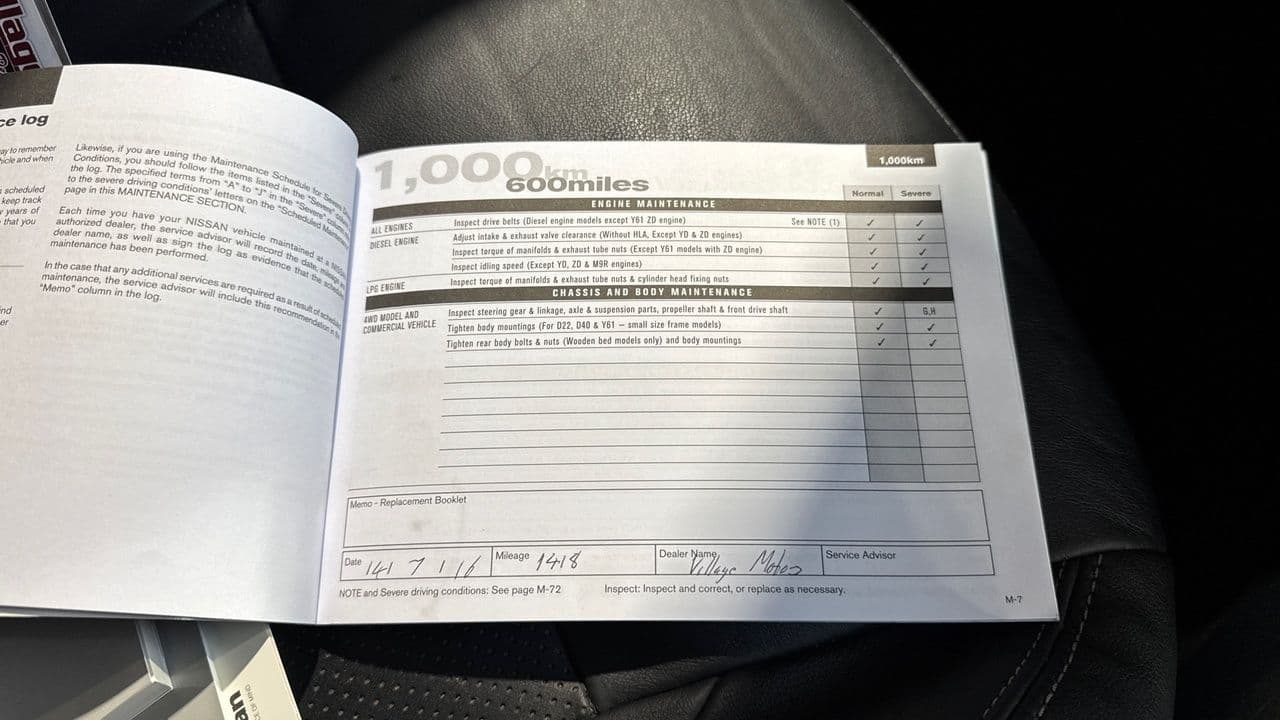 ce log
ay to remember
hicle and when
scheduled
keep track
years of
that you
Likewise, if you are using the Maintenance Schedule for Severe
Conditions, you should follow the items listed in the "Severe"
the log. The specified terms from "A" to "J" in the "Severe"
to the severe driving conditions' letters on the "Scheduled
page in this MAINTENANCE SECTION.
Each time you have your NISSAN vehicle maintained at a
authorized dealer, the service advisor will record the date,
dealer name, as well as sign the log as evidence that the
maintenance has been performed.
In the case that any additional services are required as a result of
maintenance, the service advisor will include this recommendation in
"Memo" column in the log.
1,000km
600miles
1,000km
Normal Severe
ENGINE MAINTENANCE
ALL ENGINES Inspect drive belts (Diesel engine models except Y61 ZD engine) See NOTE (1) ✓ ✓
DIESEL ENGINE Adjust intake & exhaust valve clearance (Without HLA, Except YD & ZD engines) ✓ ✓
Inspect torque of manifolds & exhaust tube nuts (Except Y61 models with ZD engine) ✓ ✓
Inspect idling speed (Except YD, ZD & M9R engines) ✓ ✓
LPG ENGINE Inspect torque of manifolds & exhaust tube nuts & cylinder head fixing nuts ✓ ✓
CHASSIS AND BODY MAINTENANCE
4WD MODEL AND
COMMERCIAL VEHICLE
Inspect steering gear & linkage, axle & suspension parts, propeller shaft & front drive shaft ✓ G,H
Tighten body mountings (For D22, D40 & Y61 – small size frame models) ✓ ✓
Tighten rear body bolts & nuts (Wooden bed models only) and body mountings ✓ ✓
Memo - Replacement Booklet
Date 14/ 7 / 16 Mileage 1418 Dealer Name Village Motos Service Advisor
NOTE and Severe driving conditions: See page M-72 Inspect: Inspect and correct, or replace as necessary.
M-7